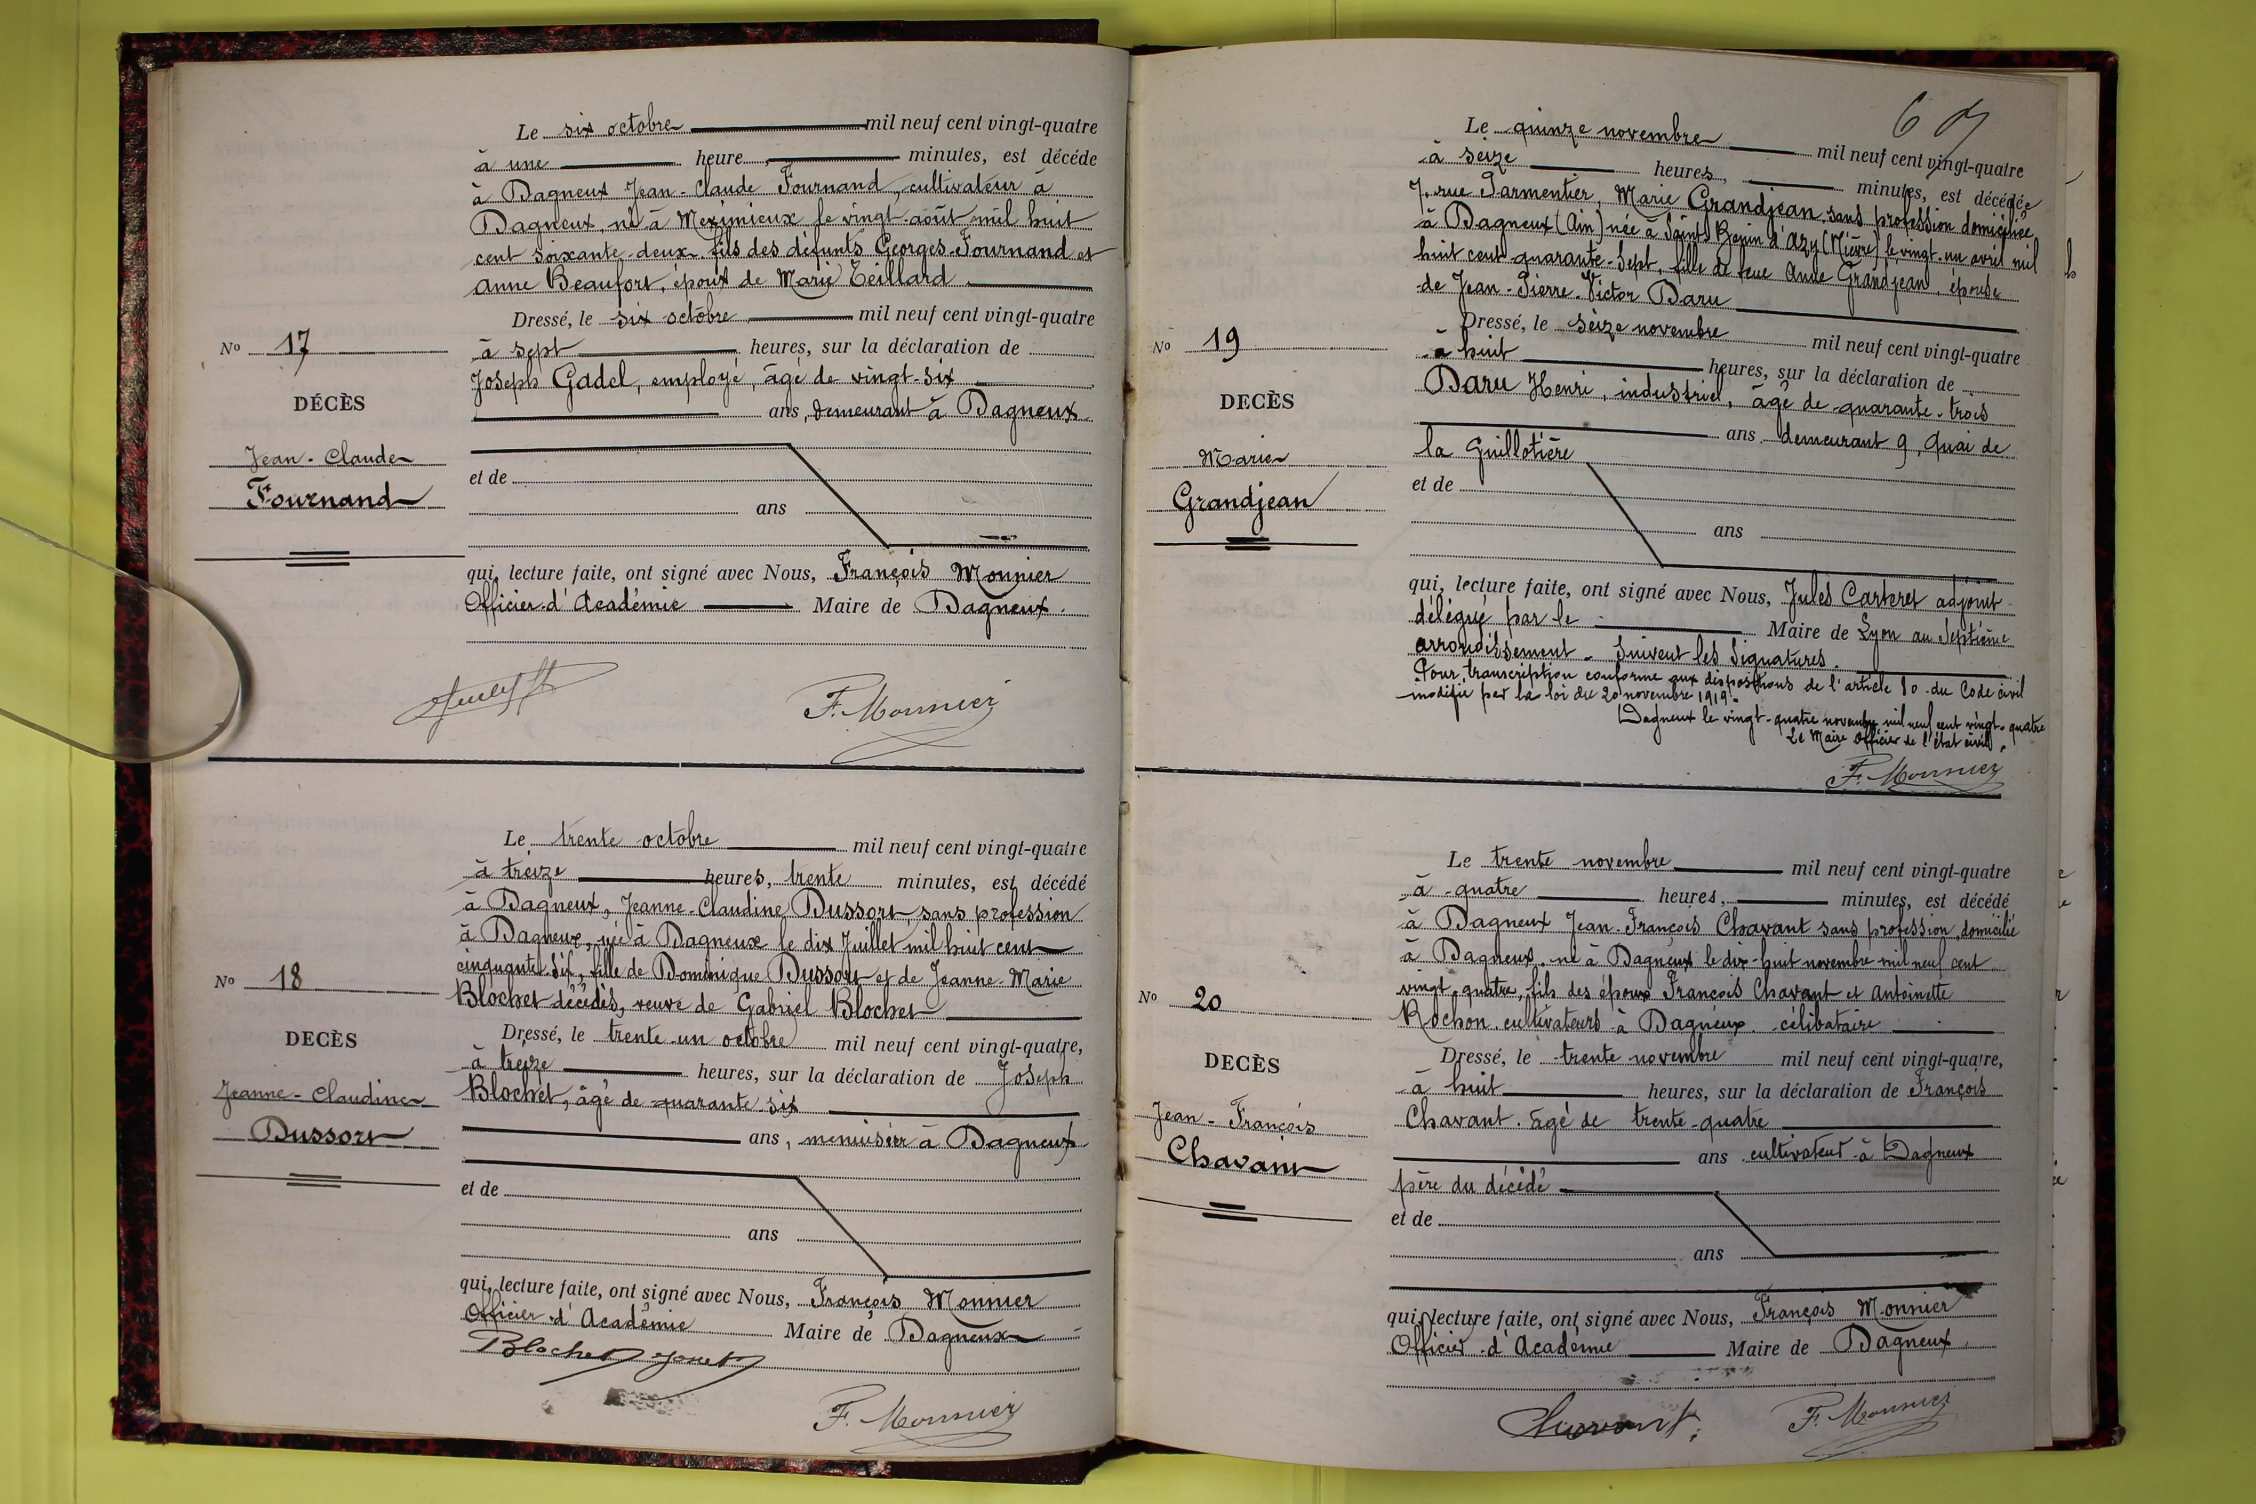 Le six octobre mil neuf cent vingt-quatre
à une heure, minutes, est décédé
à Dagneux Jean-Claude Fournand, cultivateur à
Dagneux, né à Meximieux le vingt août mil huit
cent soixante-deux fils des défunts Georges Fournand et
Anne Beaufort, époux de Marie Teillard
Dressé, le six octobre mil neuf cent vingt-quatre
à sept heures, sur la déclaration de
Joseph Gadel, employé, âgé de vingt-six
ans, demeurant à Dagneux
et de
ans
qui, lecture faite, ont signé avec Nous, François Monnier
Officier d'Académie Maire de Dagneux.
No 17
DÉCÈS
Jean-Claude
Fournand
F. Monnier
Le trente octobre mil neuf cent vingt-quatre
à treize heures, trente minutes, est décédé
à Dagneux, Jeanne-Claudine Dussort sans profession
à Dagneux, née à Dagneux le dix Juillet mil huit cent
cinquante-six, fille de Dominique Dussort et de Jeanne-Marie
Blochet décédés, veuve de Gabriel Blochet
Dressé, le trente-un octobre mil neuf cent vingt-quatre,
à treize heures, sur la déclaration de Joseph
Blochet, âgé de quarante six
ans, menuisier à Dagneux
et de
ans
qui, lecture faite, ont signé avec Nous, François Monnier
Officier d'Académie Maire de Dagneux
Blochet
F. Monnier
No 18
DECÈS
Jeanne-Claudine
Dussort
6
Le quinze novembre mil neuf cent vingt-quatre
à seize heures, minutes, est décédée
7, rue Parmentier, Marie Grandjean sans profession domiciliée
à Dagneux (Ain) née à Saint Benin d'Azy (Nièvre) le vingt-un avril mil
huit cent quarante-sept, fille de feue Anne Grandjean, épouse
de Jean-Pierre-Victor Daru
Dressé, le seize novembre mil neuf cent vingt-quatre
à huit heures, sur la déclaration de
Daru Henri, industriel, âgé de quarante-trois
ans demeurant 9, Quai de
la Guillotière
et de
ans
qui, lecture faite, ont signé avec Nous, Jules Carteret adjoint
délégué par le Maire de Lyon au Septième
arrondissement - Suivent les Signatures.
Pour transcription conforme aux dispositions de l'article 80 du Code civil
modifié par la loi du 20 novembre 1919.
Dagneux le vingt-quatre novembre mil neuf cent vingt-quatre
Le Maire Officier de l'état civil.
F. Monnier
No 19
DECÈS
Marie
Grandjean
Le trente novembre mil neuf cent vingt-quatre
à quatre heures, minutes, est décédé
à Dagneux Jean-François Chavant sans profession, domicilié
à Dagneux, né à Dagneux le dix-huit novembre mil neuf cent
vingt quatre, fils des époux François Chavant et Antoinette
Rochon cultivateurs à Dagneux célibataire
Dressé, le trente novembre mil neuf cent vingt-quatre,
à huit heures, sur la déclaration de François
Chavant. âgé de trente-quatre
ans cultivateur à Dagneux
père du décédé
et de
ans
qui, lecture faite, ont signé avec Nous, François Monnier
Officier d'Académie Maire de Dagneux
Chavant.
F. Monnier
No 20
DECÈS
Jean-François
Chavant